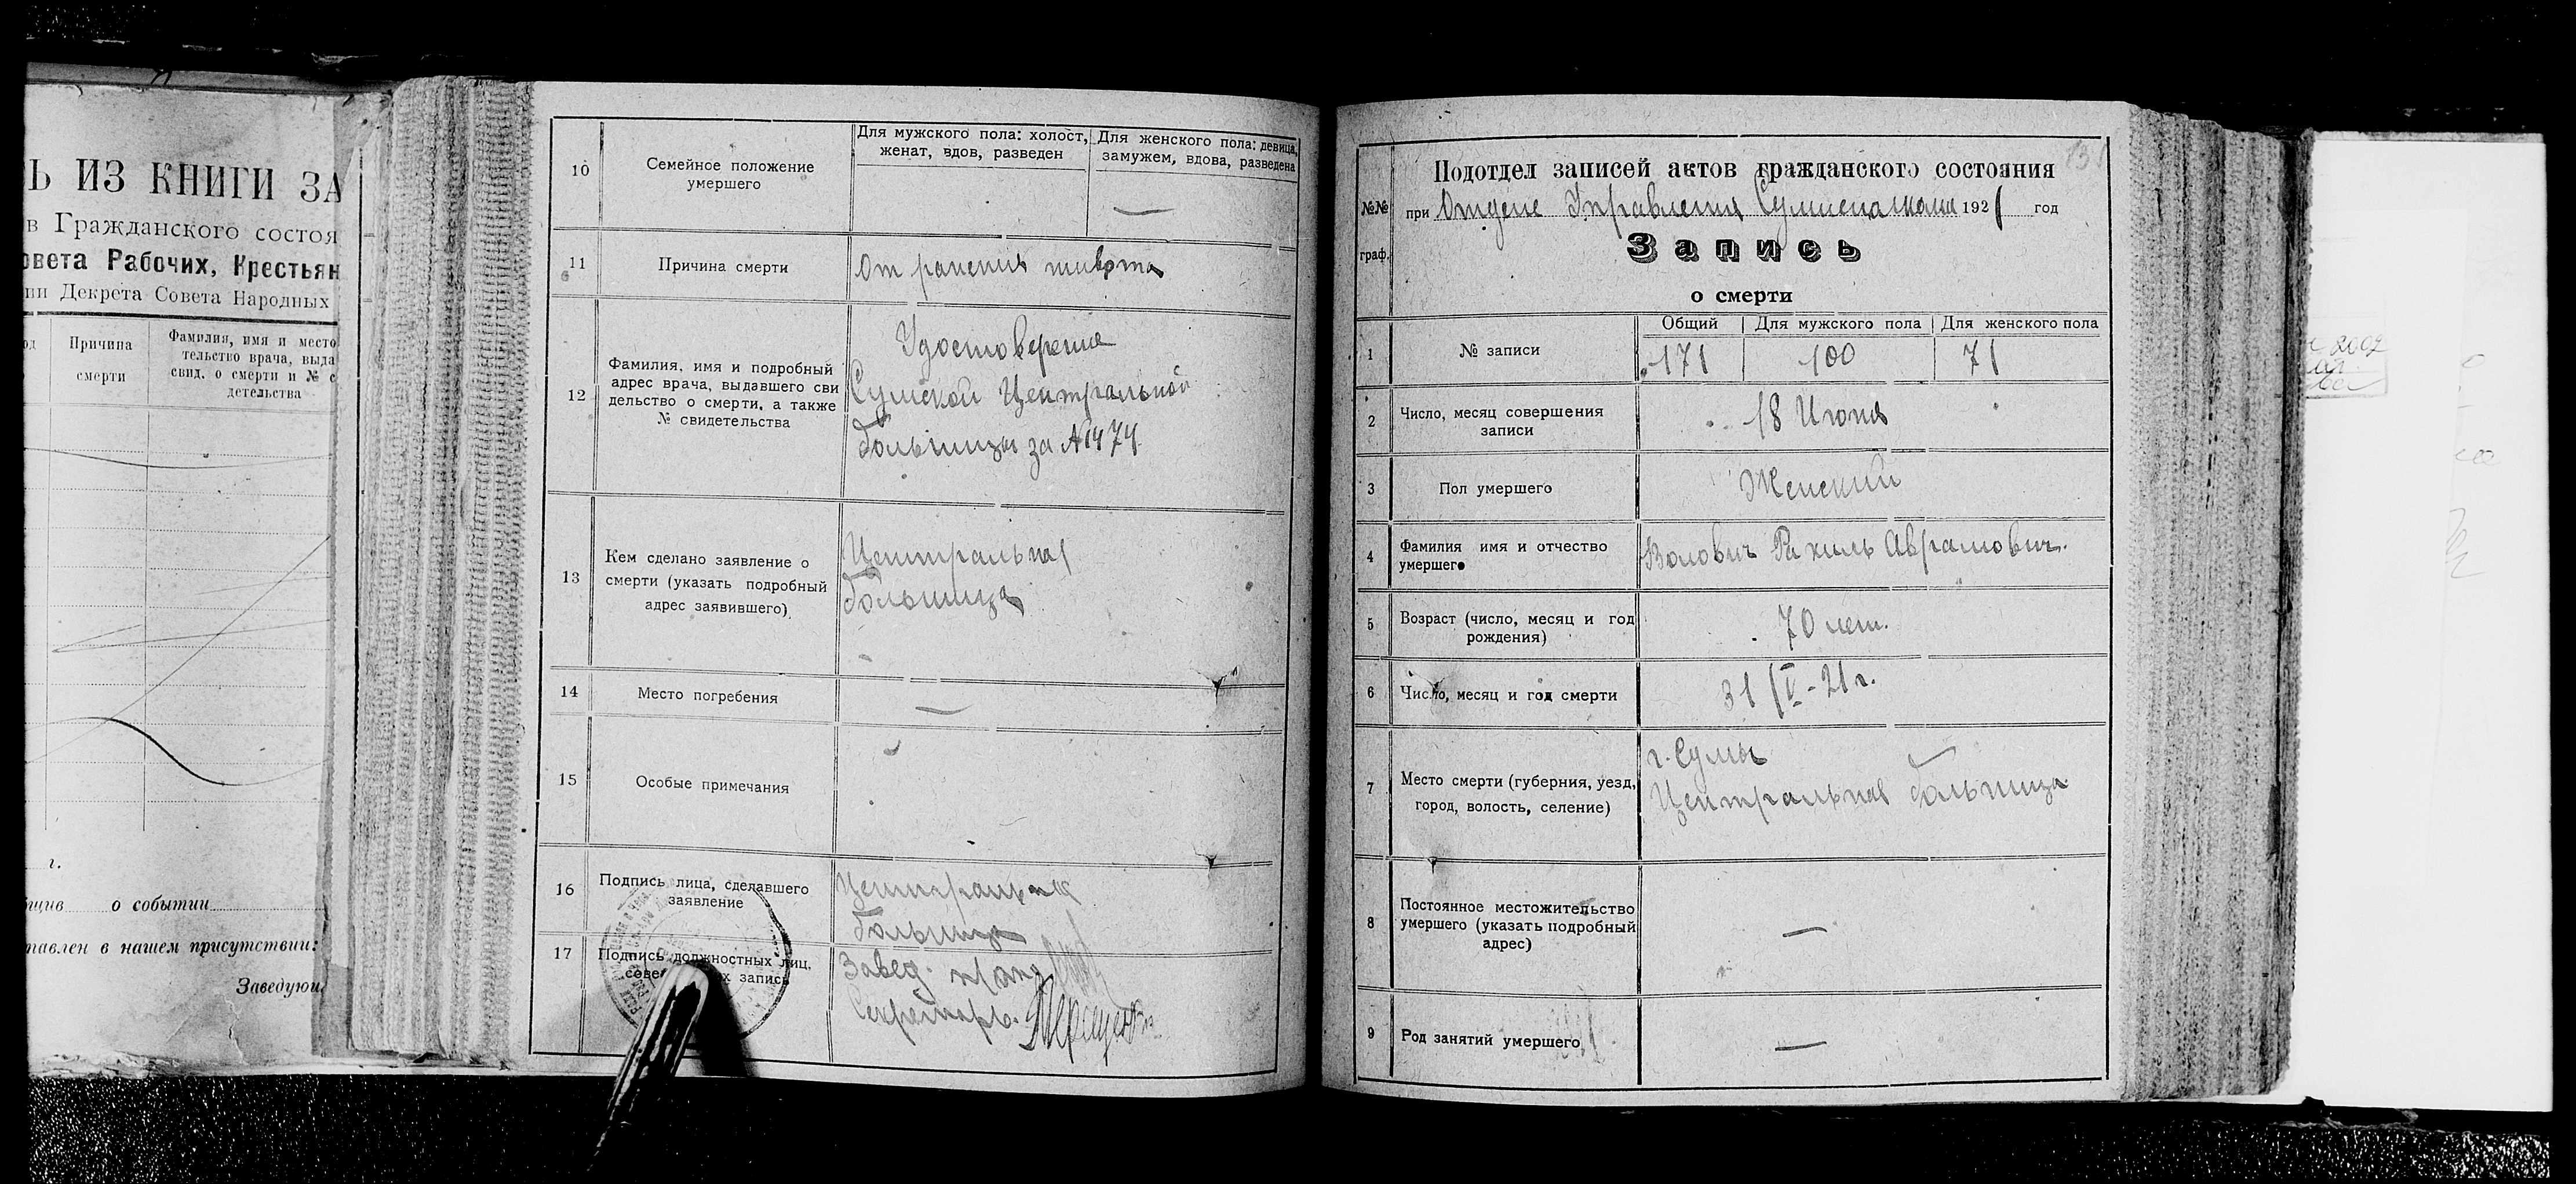 Ь ИЗ КНИГИ ЗА
в Гражданского состоя
овета Рабочих, Крестьян
ии Декрета Совета Народных
од
Причина
смерти
Фамилия, имя и место
тельство врача, выда
свид. о смерти и № с
детельства
г.
бщив о событии
тавлен в нашем присутствии:
Заведующ
10
Семейное положение
умершего
Для мужского пола: холост,
женат, вдов, разведен
Для женского пола: девица,
замужем, вдова, разведена
—
11
Причина смерти
От ранения живота
12
Фамилия, имя и подробный
адрес врача, выдавшего сви
дельство о смерти, а также
№ свидетельства
Удостоверение
Сумской Центральной
больницы за №1474
13
Кем сделано заявление о
смерти (указать подробный
адрес заявившего)
Центральная
больница
14
Место погребения
—
15
Особые примечания
16
Подпись лица, сделавшего
заявление
Центральная
больница
17
Подпись должностных лиц,
сове х запись
Завед.
Секретарь.
Подотдел записей актов гражданского состояния
№№
граф.
при Отделе Управления 1921 год
Запись
о смерти
1
№ записи
Общий
Для мужского пола
Для женского пола
171
100
71
2
Число, месяц совершения
записи
18 Июня
3
Пол умершего
Женский
4
Фамилия имя и отчество
умершего
Волович Рахиль Абрамович.
5
Возраст (число, месяц и год
рождения)
70 лет.
6
Число, месяц и год смерти
31/V-21 г.
7
Место смерти (губерния, уезд,
город, волость, селение)
г. Сумы
Центральная больница
8
Постоянное местожительство
умершего (указать подробный
адрес)
—
9
Род занятий умершего
—
2002